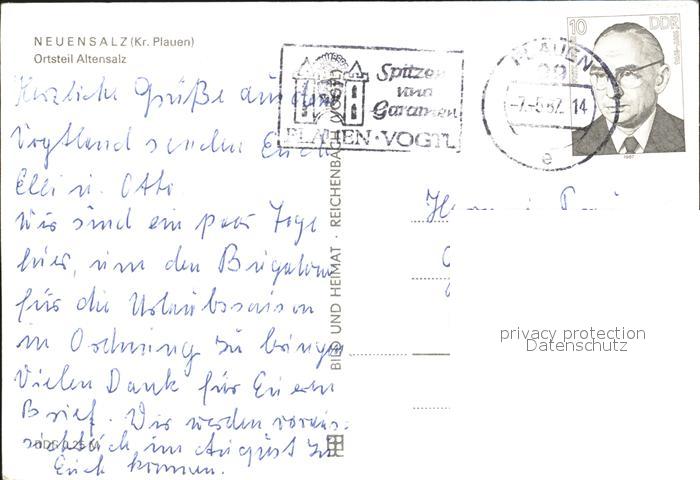 NEUENSALZ (Kr. Plauen)
Ortsteil Altensalz
Herzliche Grüße aus dem
Vogtland senden Euch
Elli u. Otto
Wir sind ein paar Tage
hier, um den Bugalow
für die Urlaubssaison
in Ordnung zu bringen
Vielen Dank für Euern
Brief. Wir werden voraus-
sichtlich im August zu
Euch kommen.
BILD UND HEIMAT · REICHENBACH (VOGTL)
Spitzen
und
Gardinen
PLAUEN · VOGTL
PLAUEN
-7.-5.87. 14
e
10
DDR
1987
privacy protection
Datenschutz